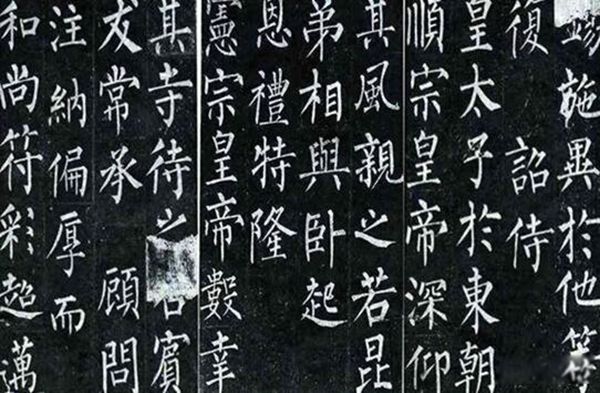 施異於他等
復 詔侍
皇太子於東朝
順宗皇帝深仰
其風親之若昆
弟相與臥起
恩禮特隆
憲宗皇帝數幸
其寺待之若賓
友常承 顧問
注納偏厚而
和尚符彩超邁